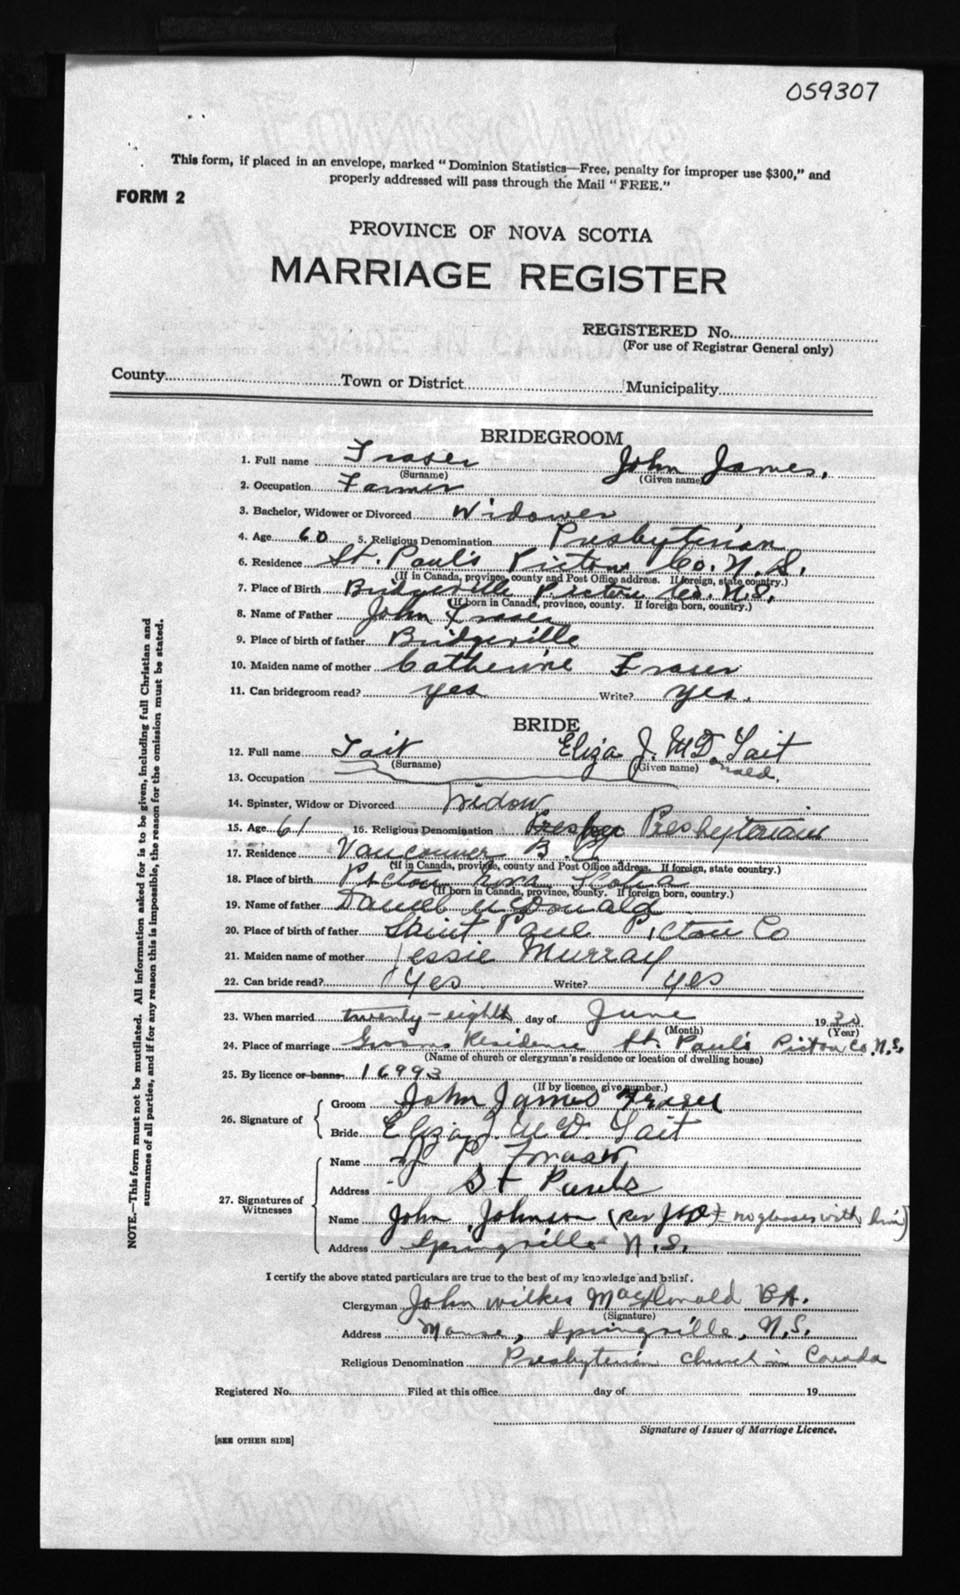 059307
This form, if placed in an envelope, marked "Dominion Statistics—Free, penalty for improper use $300," and
properly addressed will pass through the Mail "FREE."
FORM 2
PROVINCE OF NOVA SCOTIA
MARRIAGE REGISTER
REGISTERED No.
(For use of Registrar General only)
County Town or District Municipality
BRIDEGROOM
1. Full name Fraser John James,
(Surname) (Given name)
2. Occupation Farmer
3. Bachelor, Widower or Divorced Widower
4. Age 60 5. Religious Denomination Presbyterian
6. Residence St. Paul's Pictou Co. N.S.
(If in Canada, province, county and Post Office address. If foreign, state country.)
7. Place of Birth Bridgeville Pictou Co. N.S.
(If born in Canada, province, county. If foreign born, country.)
8. Name of Father John Fraser
9. Place of birth of father Bridgeville
10. Maiden name of mother Catherine Fraser
11. Can bridegroom read? yes Write? yes.
BRIDE
12. Full name Tait Eliza J. McDonald Tait
(Surname) (Given name)
13. Occupation
14. Spinster, Widow or Divorced Widow
15. Age 61 16. Religious Denomination Presbyterian
17. Residence Vancouver B.C.
(If in Canada, province, county and Post Office address. If foreign, state country.)
18. Place of birth Pictou Nova Scotia
(If born in Canada, province, county. If foreign born, country.)
19. Name of father Daniel McDonald
20. Place of birth of father Saint Paul Pictou Co
21. Maiden name of mother Jessie Murray
22. Can bride read? Yes Write? yes
23. When married twenty-eighth day of June 1930
(Month) (Year)
24. Place of marriage Grooms Residence St. Paul's Pictou Co. N.S.
(Name of church or clergyman's residence or location of dwelling house)
25. By licence or banns 16993
(If by licence, give number.)
26. Signature of Groom John James Fraser
Bride Eliza J. McD. Tait
27. Signatures of Witnesses Name P Fraser
Address St Pauls
Name John Johnson (Rev no glasses with him)
Address Springville N.S.
I certify the above stated particulars are true to the best of my knowledge and belief.
Clergyman John Wilkes MacDonald B.A.
(Signature)
Address Manse, Springville, N.S.
Religious Denomination Presbyterian Church in Canada
Registered No. Filed at this office day of 19
Signature of Issuer of Marriage Licence.
[SEE OTHER SIDE]
NOTE.—This form must not be mutilated. All informations asked for is to be given, including full Christian and
surnames of all parties, and if for any reason this is impossible, the reason for the omission must be stated.